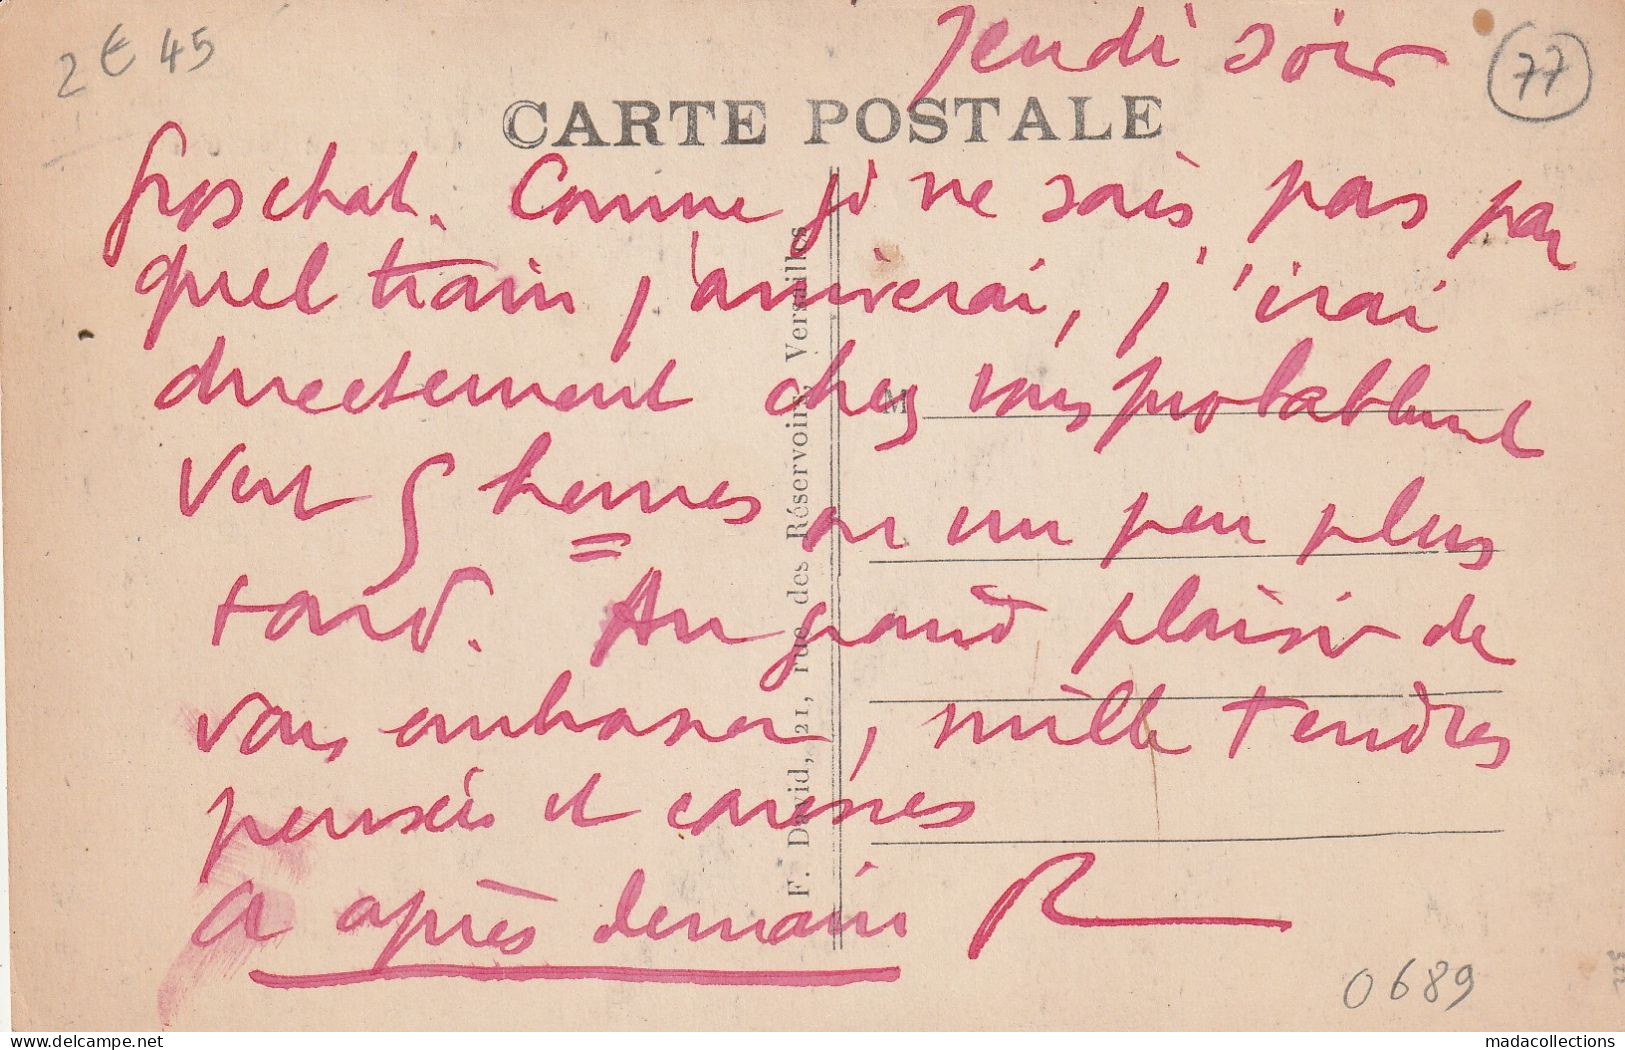 2 € 45
Jeudi soir
77
CARTE POSTALE
Gros chat. Comme je ne sais pas par
quel train j'arriverai, j'irai
directement chez vous probablement
vers 5 heures ou un peu plus
tard. Au grand plaisir de
vous embrasser, mille tendres
pensées et caresses
A après demain R
M
F. David, 21, rue des Réservoirs, Versailles
0689
delcampe.net
madacollections